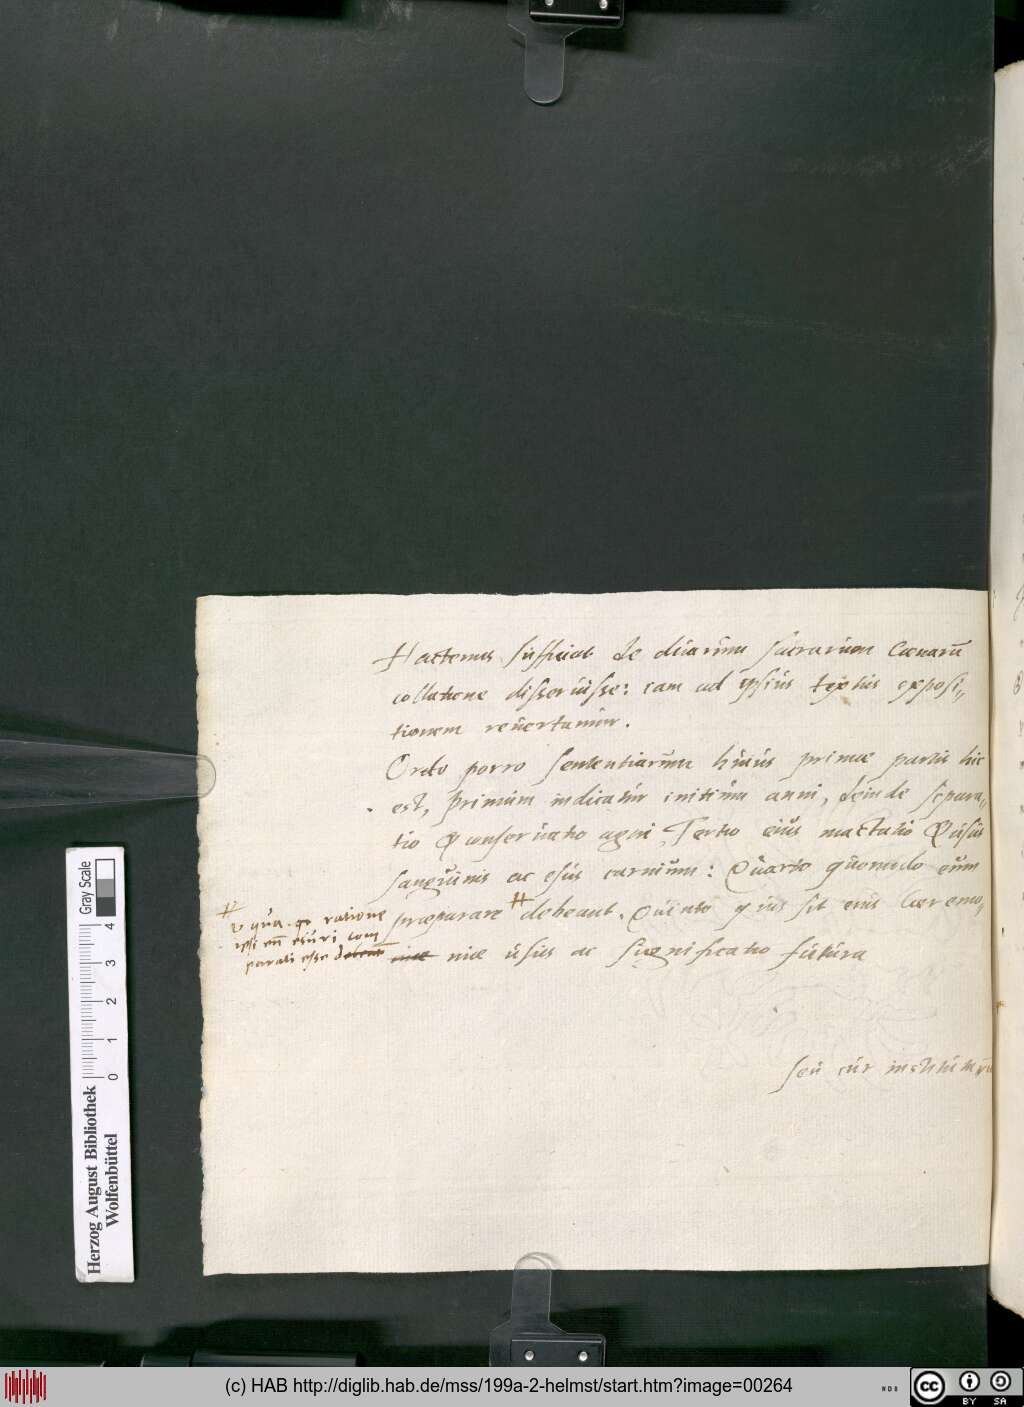 Hactenus sufficiat de duarum sacrarum Cœnarū
collatione disseruisse: iam ad ipsius textus exposi,,
tionem reuertamur.
Ordo porro sententiarum huius primæ partis hic
est, primum indicatur initium anni, deinde separa,,
tio & conseruatio agni, Tertio eius mactatio & usus
sanguinis ac esus carnium: Quarto quomodo eum
præparare # debeant. Quinto quis sit eius Cæremo,,
niæ usus ac significatio futura
#
& qua ratione
ipsi eū esuri com
parati esse debeāt
seu cur institutū
Gray Scale
0 1 2 3 4
Herzog August Bibliothek
Wolfenbüttel
(c) HAB http://diglib.hab.de/mss/199a-2-helmst/start.htm?image=00264
cc BY SA